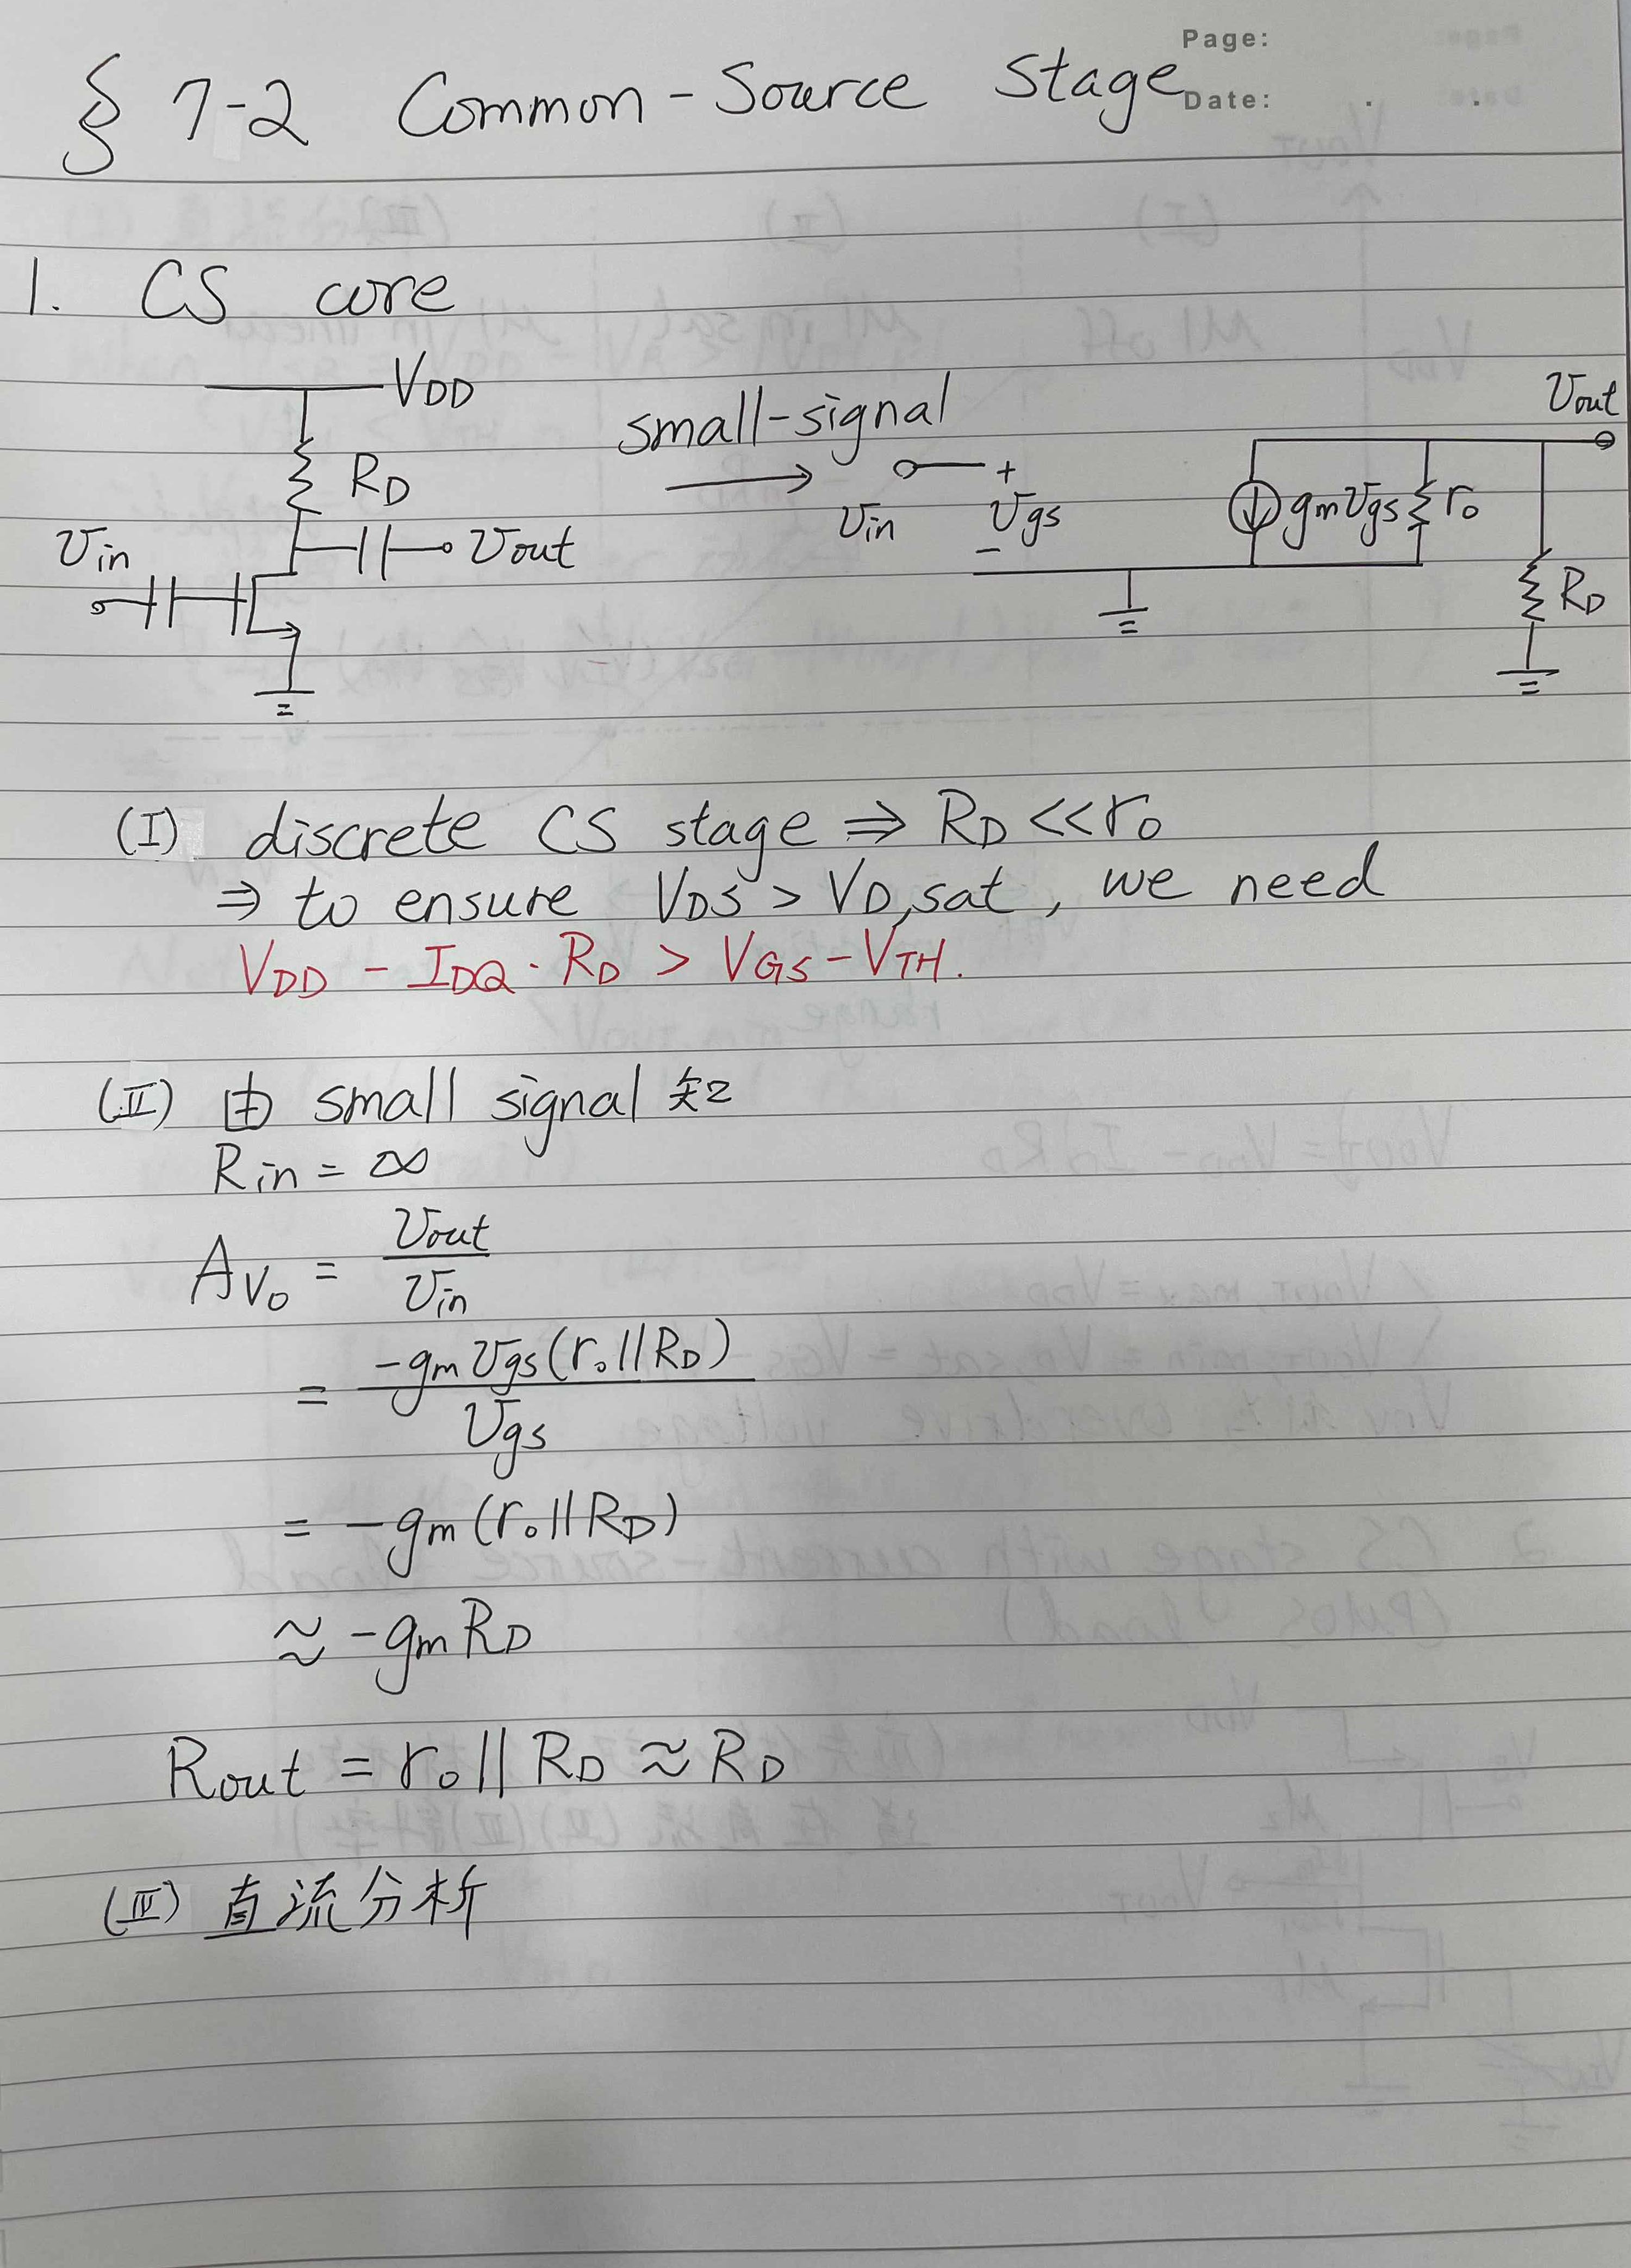 Page:
Date:
§ 7-2 Common-Source Stage
1. CS core
VDD
RD
Vin
Vout
small-signal
Vin
+
Vgs
-
gmVgs
ro
Vout
RD
(I) discrete CS stage ⇒ RD << ro
⇒ to ensure VDS > VD,sat, we need
VDD - IDQ · RD > VGS - VTH.
(II) 由 small signal 知
Rin = ∞
AVo = Vout / Vin
= -gmVgs(ro || RD) / Vgs
= -gm(ro || RD)
≈ -gmRD
Rout = ro || RD ≈ RD
直流分析